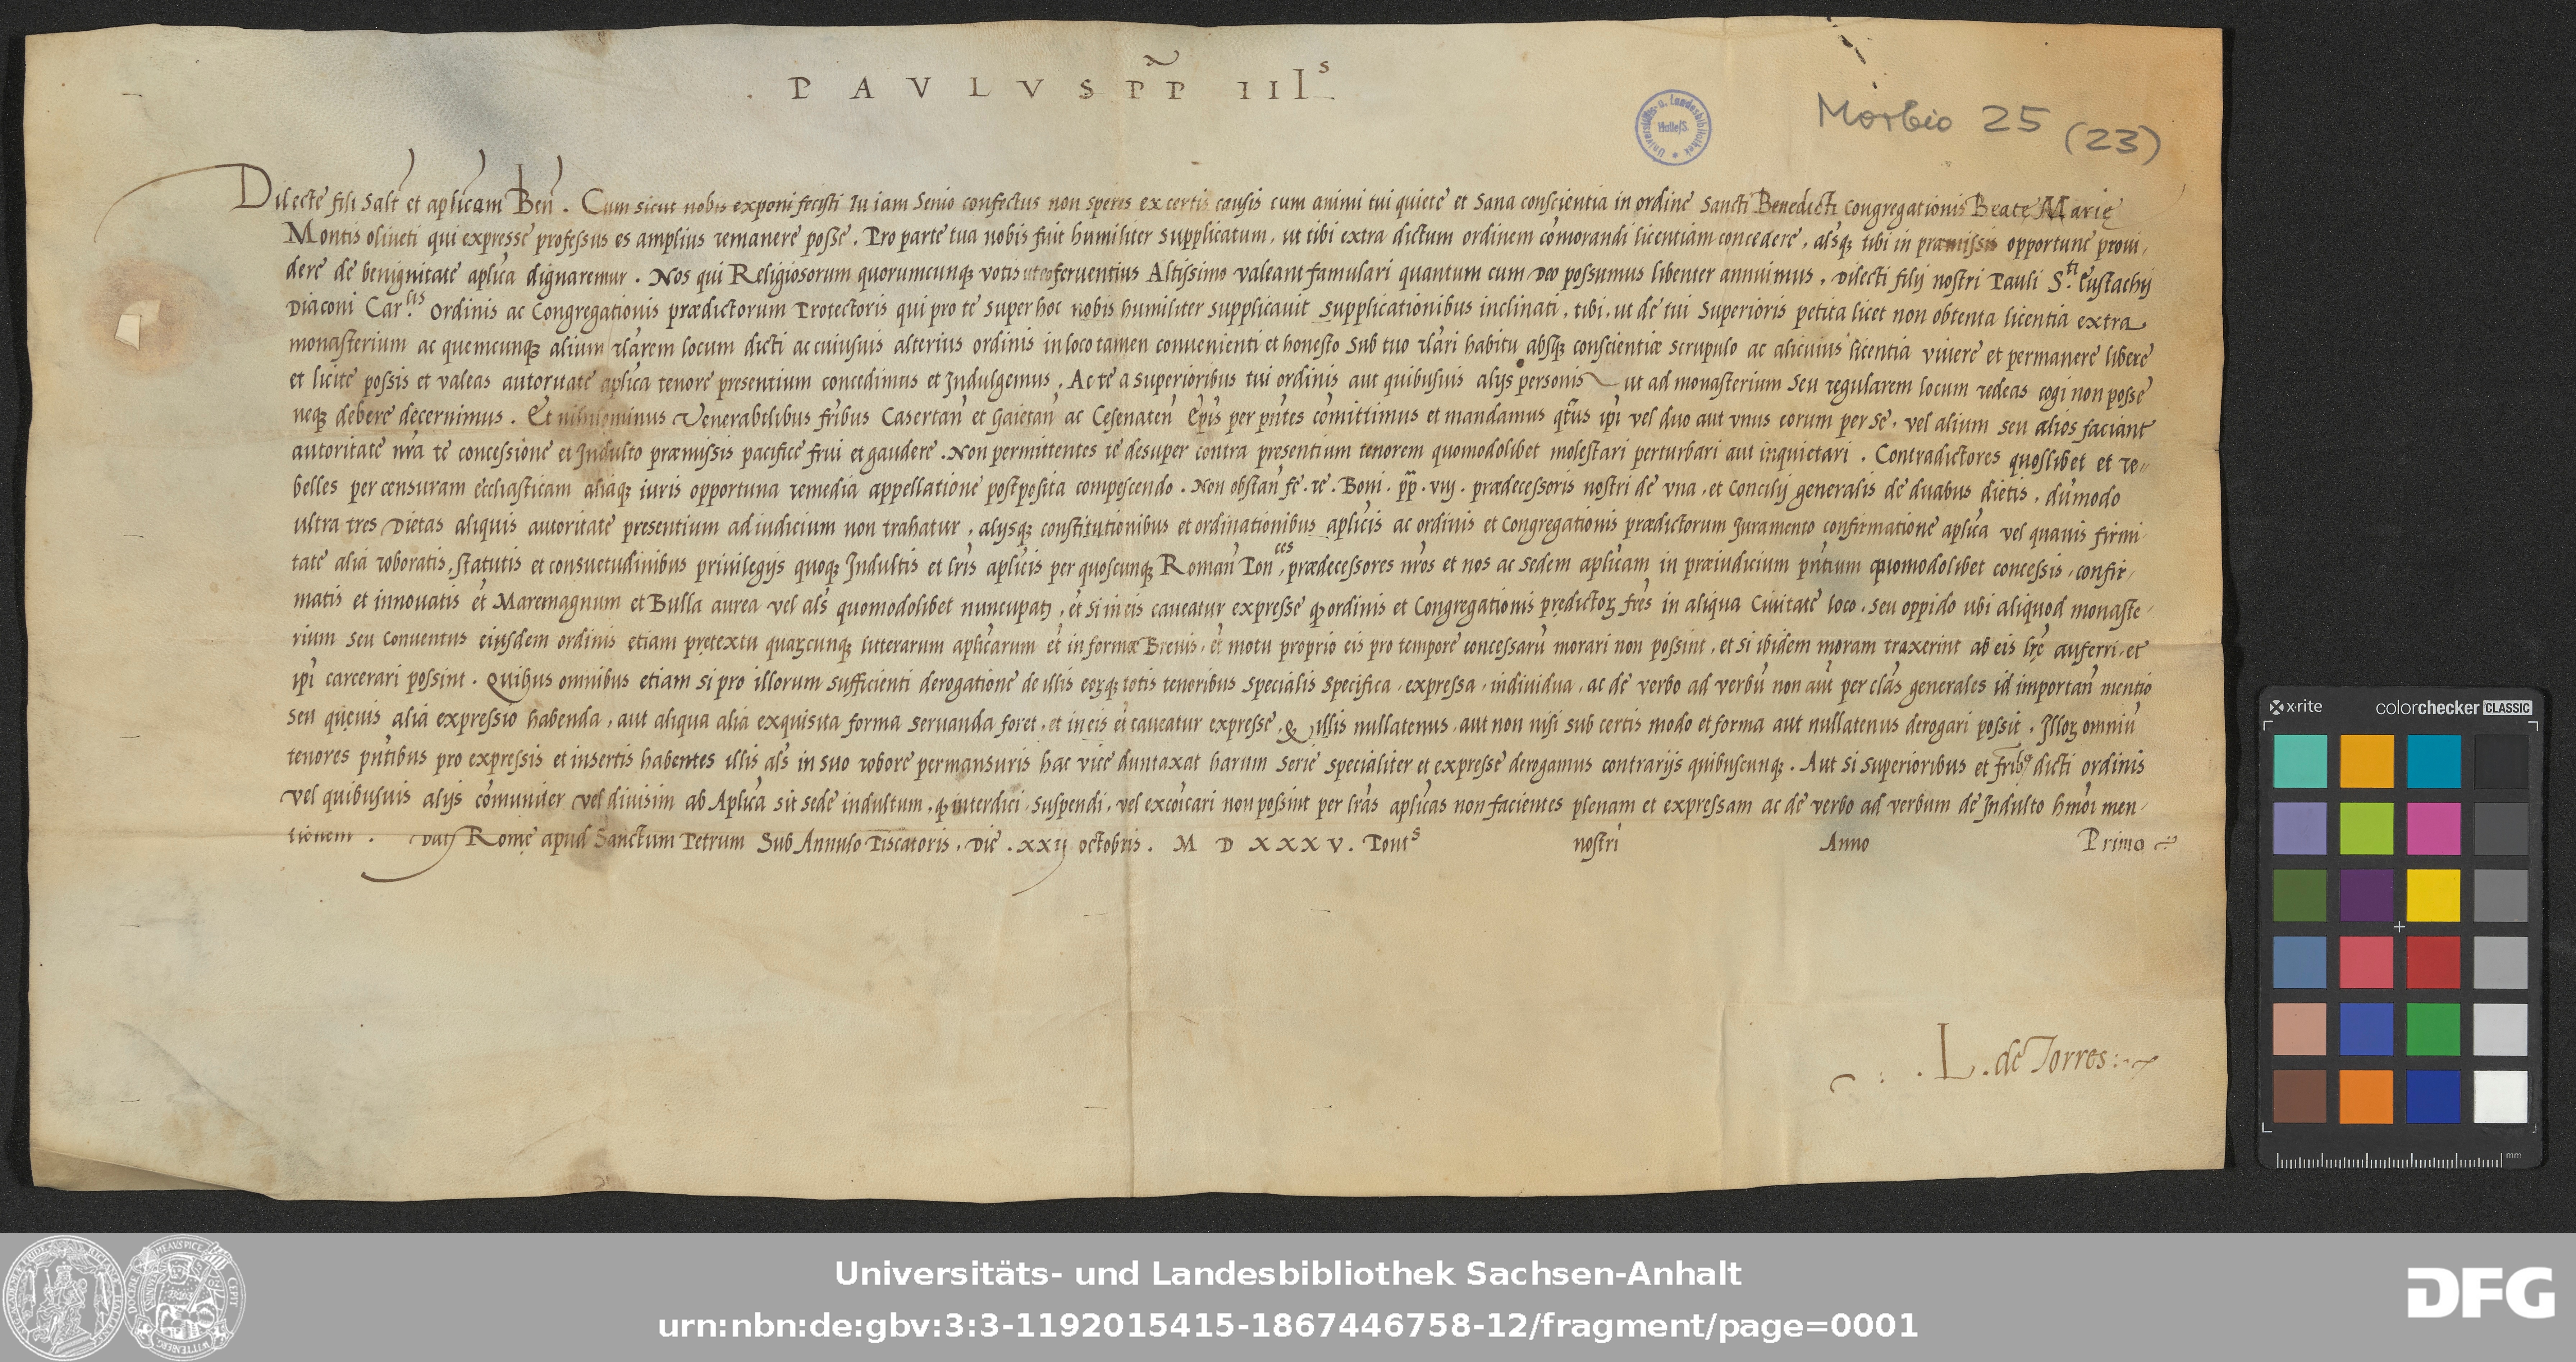 . P A V L V S P̃P III.s
Universitäts- u. Landesbibliothek Halle/S.
Morbio 25 (23)
Dilecte fili Salt̄ et aplicam Beñ. Cum sicut nobis exponi fecisti tu iam senio confectus non speres ex certis causis cum animi tui quiete et sana conscientia in ordine Sancti Benedicti congregationis Beatę Marię
Montis oliveti qui expresse professus es amplius remanere posse. Pro parte tua nobis fuit humiliter supplicatum, ut tibi extra dictum ordinem com̃orandi licentiam concedere, alsq; tibi in præmissis opportune provi,
dere de benignitate aplica dignaremur. Nos qui Religiosorum quorumcunq; votis ut eo ferventius Altissimo valeant famulari quantum cum Deo possumus libenter annuimus, Dilecti filij nostri Pauli S.ti Eustachij
Diaconi Car.lis Ordinis ac Congregationis prædictorum Protectoris qui pro te super hoc nobis humiliter supplicavit supplicationibus inclinati, tibi, ut de tui Superioris petita licet non obtenta licentia extra
monasterium ac quemcunq; alium rlarem locum dicti ac cuiusvis alterius ordinis in loco tamen convenienti et honesto sub tuo rlari habitu absq; conscientiæ scrupulo ac alicuius licentia vivere et permanere libere
et licite possis et valeas autoritate aplica tenore presentium concedimus et Indulgemus, Ac te a superioribus tui ordinis aut quibusvis alijs personis ut ad monasterium seu regularem locum redeas cogi non posse
neq; debere decernimus. Et nihilominus Venerabilibus fribus Casertañ et Gaietañ ac Cesenateñ Epis per pñtes com̃ittimus et mandamus qtus ipi vel duo aut unus eorum per se, vel alium seu alios faciant
autoritate nr̃a te concessione et Indulto præmissis pacifice frui et gaudere. Non permittentes te desuper contra presentium tenorem quomodolibet molestari perturbari aut inquietari. Contradictores quoslibet et re„
belles per censuram ecclīasticam aliaq; iuris opportuna remedia appellatione postposita compescendo. Non obstañ fe. re. Boni. pp̄. viij. prædecessoris nostri de una, et Concilij generalis de duabus dietis, dum̃odo
ultra tres Dietas aliquis autoritate presentium ad iudicium non trahatur, alijsq; constitutionibus et ordinationibus aplicis ac ordinis et Congregationis prædictorum Iuramento confirmatione aplica vel quavis firmi,
tate alia roboratis, statutis et consuetudinibus privilegijs quoq; Indultis et lr̃is aplicis per quoscunq; Romañ Pon.ces, prædecessores nr̃os et nos ac Sedem aplicam in præiudicium pñtium quomodolibet concessis, confir,
matis et innovatis et Maremagnum et Bulla aurea vel als quomodolibet nuncupatꝫ, et si in eis caveatur expresse ꝙ ordinis et Congregationis prędictoꝝ fres in aliqua Civitate loco, seu oppido ubi aliquod monaste,
rium seu Conventus eiusdem ordinis etiam pretextu quaꝝcunq; litterarum aplicarum et in formæ Brevis, et motu proprio eis pro tempore concessarū morari non possint, et si ibidem moram traxerint ab eis lrẽ auferri, et
ipi carcerari possint. Quibus omnibus etiam si pro illorum sufficienti derogatione de illis eoꝝq; totis tenoribus specialis specifica, expressa, individua, ac de verbo ad verbū non aut̄ per clas generales id importañ mentio
seu quęvis alia expressio habenda, aut aliqua alia exquisita forma servanda foret, et in eis et̄ caveatur expresse, ꝙ illis nullatenus, aut non nisi sub certis modo et forma aut nullatenus derogari possit. Illoꝝ omniū
tenores pñtibus pro expressis et insertis habentes illis als in suo robore permansuris hac vice duntaxat harum serie specialiter et expresse derogamus contrarijs quibuscunq;. Aut si superioribus et frib9 dicti ordinis
vel quibusvis alijs com̃uniter vel divisim ab Aplica sit sede indultum, ꝙ interdici, suspendi, vel excoicari non possint per lras aplicas non facientes plenam et expressam ac de verbo ad verbum de Indulto hmoi men,
tionem. Datꝫ Romę apud Sanctum Petrum Sub Annulo Piscatoris, Die .xxij octobris. M D XXXV. Pont.s nostri Anno Primo
. L. de Torres:
x-rite colorchecker CLASSIC
mm
Universitäts- und Landesbibliothek Sachsen-Anhalt
urn:nbn:de:gbv:3:3-1192015415-1867446758-12/fragment/page=0001
DFG